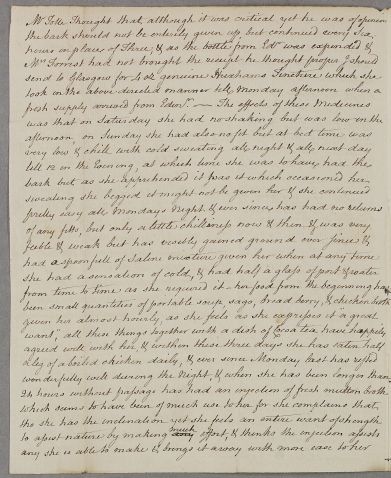 Mr Tolle Thought that although it was critical yet he was of opinion
the bark should not be entirely given up but continued every Six
hours in place of Three, & as the bottle from Edn was expended &
Mrs Forrest had not brought the receipt he thought proper I should
send to Glasgow for 4 oz genuine Huxhams Tincture which she
took in the above directed manner till Monday afternoon when a
fresh supply arrived from Edinr. — The effects of these Medicines
was that on Saturday she had no shaking but was low in the
afternoon, on Sunday she had also no fit but at bed time was
very low & chill with cold sweating all night & all next day
till 12 in the Evening, at which time she was to have had the
bark but as she apprehended it was it which occasioned her
sweating she begged it might not be given her & she continued
pretty easy all Mondays night, & ever since has had no returns
of any fitts, but only a little chillness now & then & was very
feeble & weak but has visibly gained ground ever since &
had a spoonfull of Saline mixture given her when at any time
she had a sensation of cold, & had half a glass of port & water
from time to time as she required it — her food from the beginning has
been small quantities of portable soup, sago, bread berry, & chicken broth
given her almost hourly, as she feels as she expresses it a great
want, all these things together with a dish of Cocoa tea have happily
agreed well with her, & within these three days she has eaten half
a leg of a boiled chicken daily, & ever since Monday last has rested
wonderfully well during the Night, & when she has been longer than
24 hours without passage has had an injection of fresh mutton broth
which seems to have been of much use to her for she complains that
tho she has the inclination yet she feels an entire want of strength
to assist nature by making much effort, & thinks the injection assists
any she is able to make & brings it away with more ease to her